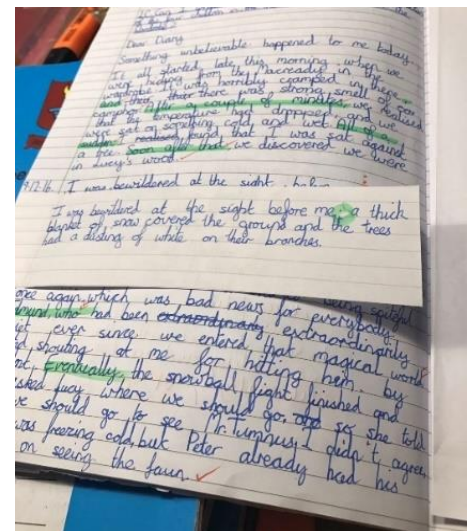 of the four children
Dear Diary
Something unbelievable happened to me today.
It all started late this morning, when we
were hiding from the Macready in the
wardrobe. I was horridly cramped in there
and there was strong smell of
camphor. After a couple of minutes, we realised
that the temperature had dropped and we
were sat on something cold and wet. All of a
sudden I realised found that I was sat against
a tree. Soon after that we discovered we were
in Lucy's wood.
9.12.16 I was bewildered at the sight
I was bewildered at the sight before me, a thick
blanket of snow covered the ground and the trees
had a dusting of white on their branches.
being spiteful
once again, which was bad news for everybody.
who had been extraordinary extraordinarily
ever since we entered that magical world
shouting at me for hitting him by
Eventually, the snowball fight finished and
asked Lucy where we should go, and so she told
we should go to see Mr. Tumnus. I didn't agree,
was freezing cold, but Peter already had his
on seeing the faun.